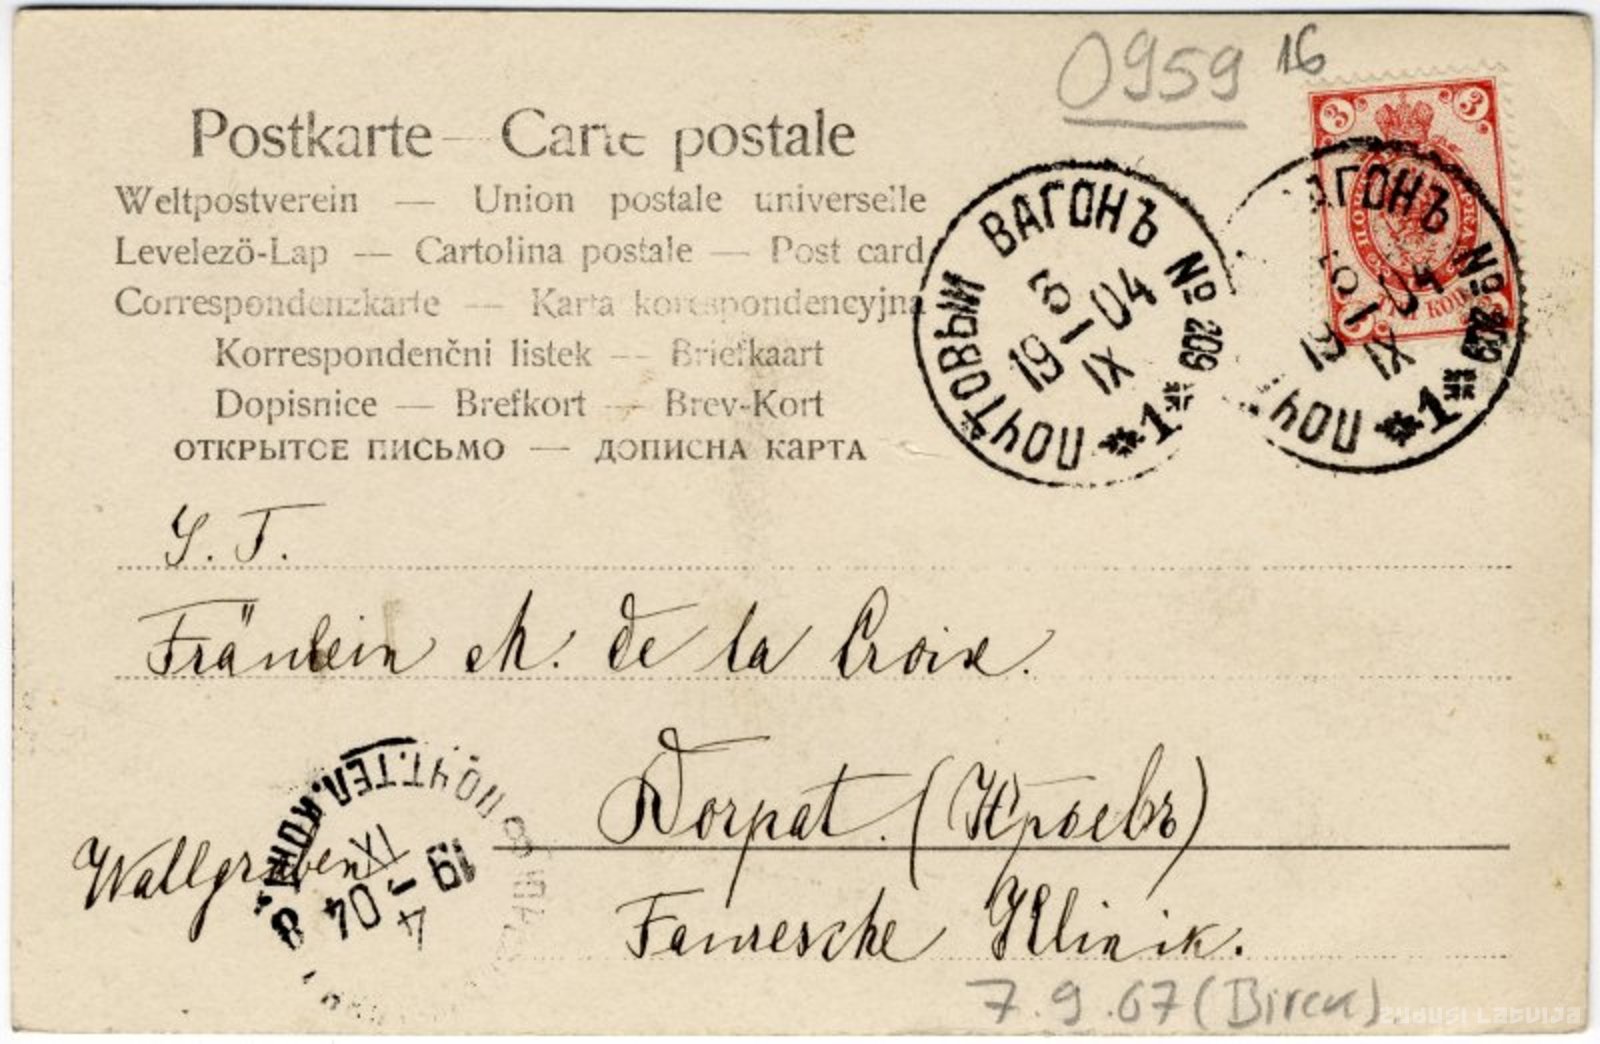 0959 16
Postkarte — Carte postale
Weltpostverein — Union postale universelle
Levelezö-Lap — Cartolina postale — Post card
Correspondenzkarte — Karta korespondencyjna
Korrespondenčni listek — Briefkaart
Dopisnice — Brefkort — Brev-Kort
ОТКРЫТОЕ ПИСЬМО — ДОПИСНА КАРТА
3 3
ПОЧТОВЫЙ ВАГОНЪ № 209
19 04
IX
*1*
АГОНЪ № 209
19 04
IX
ПОЧ *1*
S. T.
Fräulein M. de la Croix.
Dorpat. (Юрьевъ)
Wallgraben
ПОЧТ. ТЕЛ. КОНТ.
4 IX
19 04
8
Klinik.
7.9.67 (Birck)
zudusi Latvija